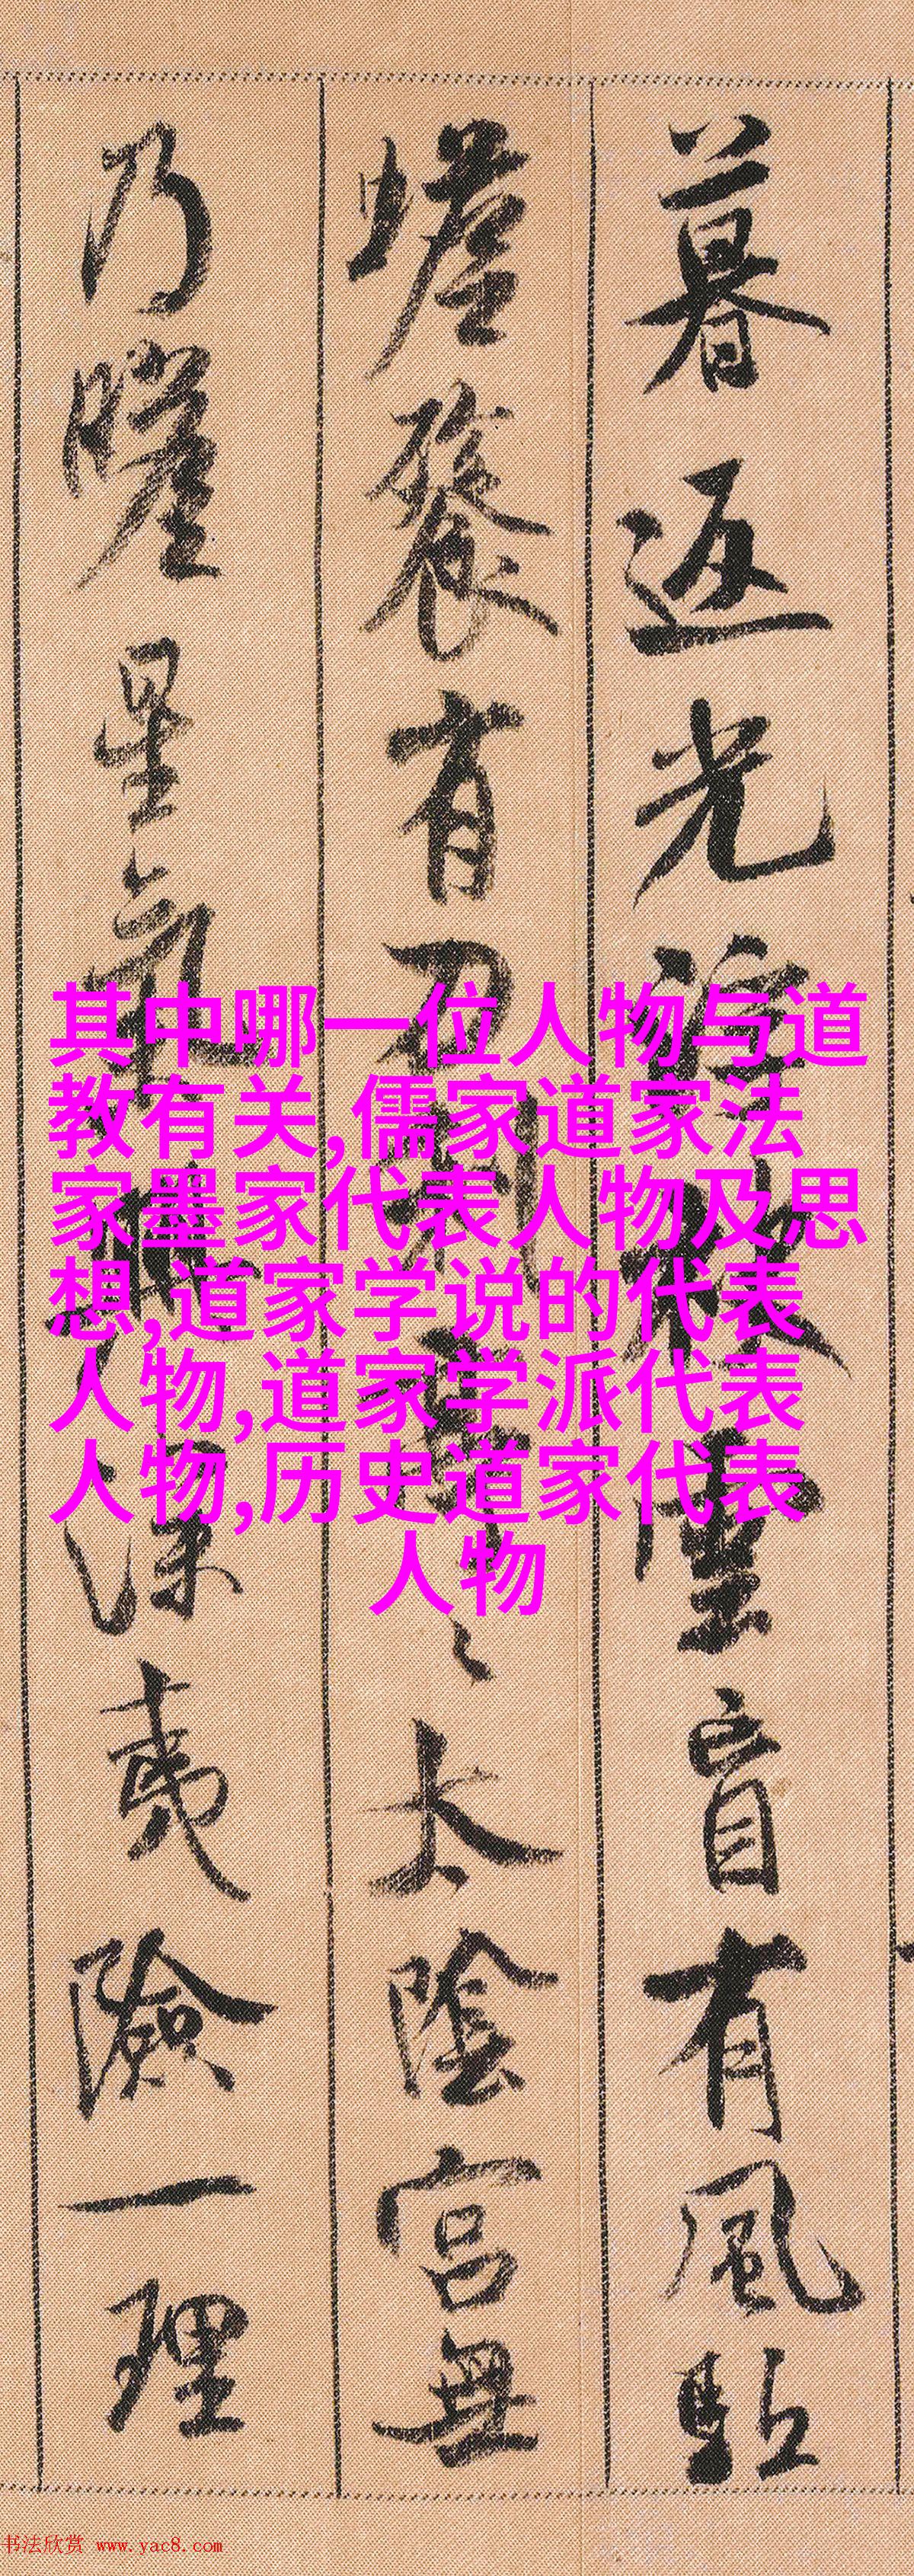 暮返光浮
雲盲有風點
發有
太陰宮無
乃
星氣
深夷險一理
其中哪一位人物与道
教有关,儒家道家法
家墨家代表人物及思
想,道家学说的代表
人物,道家学派代表
人物,历史道家代表
人物
书法欣赏 www.yac8.com